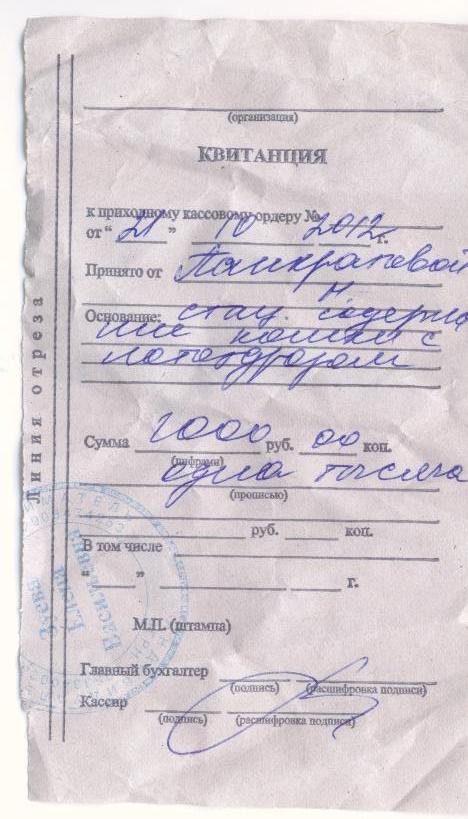 (организация)
КВИТАНЦИЯ
к приходному кассовому ордеру №
от " 21 " 10 2012 г.
Принято от Панкратовой
Н
Основание: стац. содержа
ние кошки с
Сумма 1000 руб. 00 коп.
(цифрами)
одна тысяча
(прописью)
руб. коп.
В том числе
" " г.
М.П. (штампа)
Главный бухгалтер
(подпись) (расшифровка подписи)
Кассир
(подпись) (расшифровка подписи)
Линия отреза
Елена
Васильевна